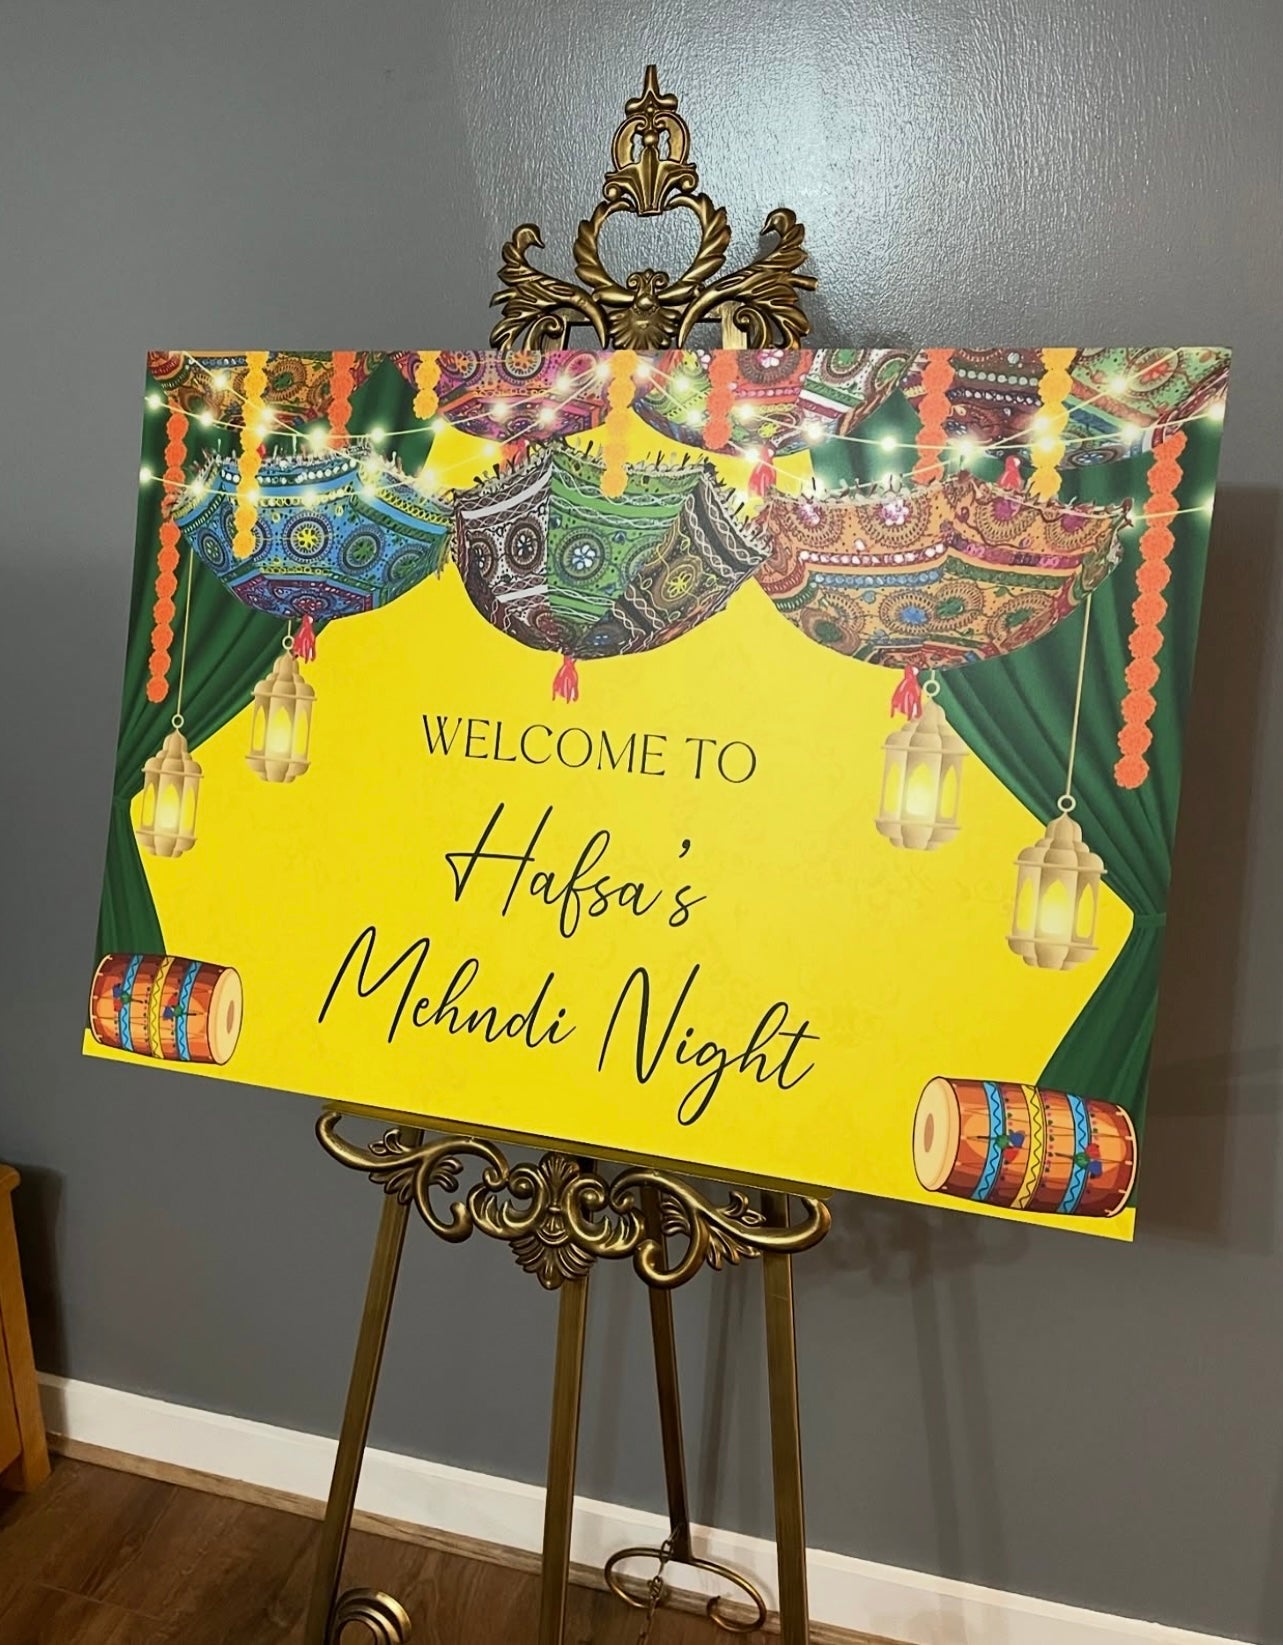 WELCOME TO
Hafsa's
Mehndi Night